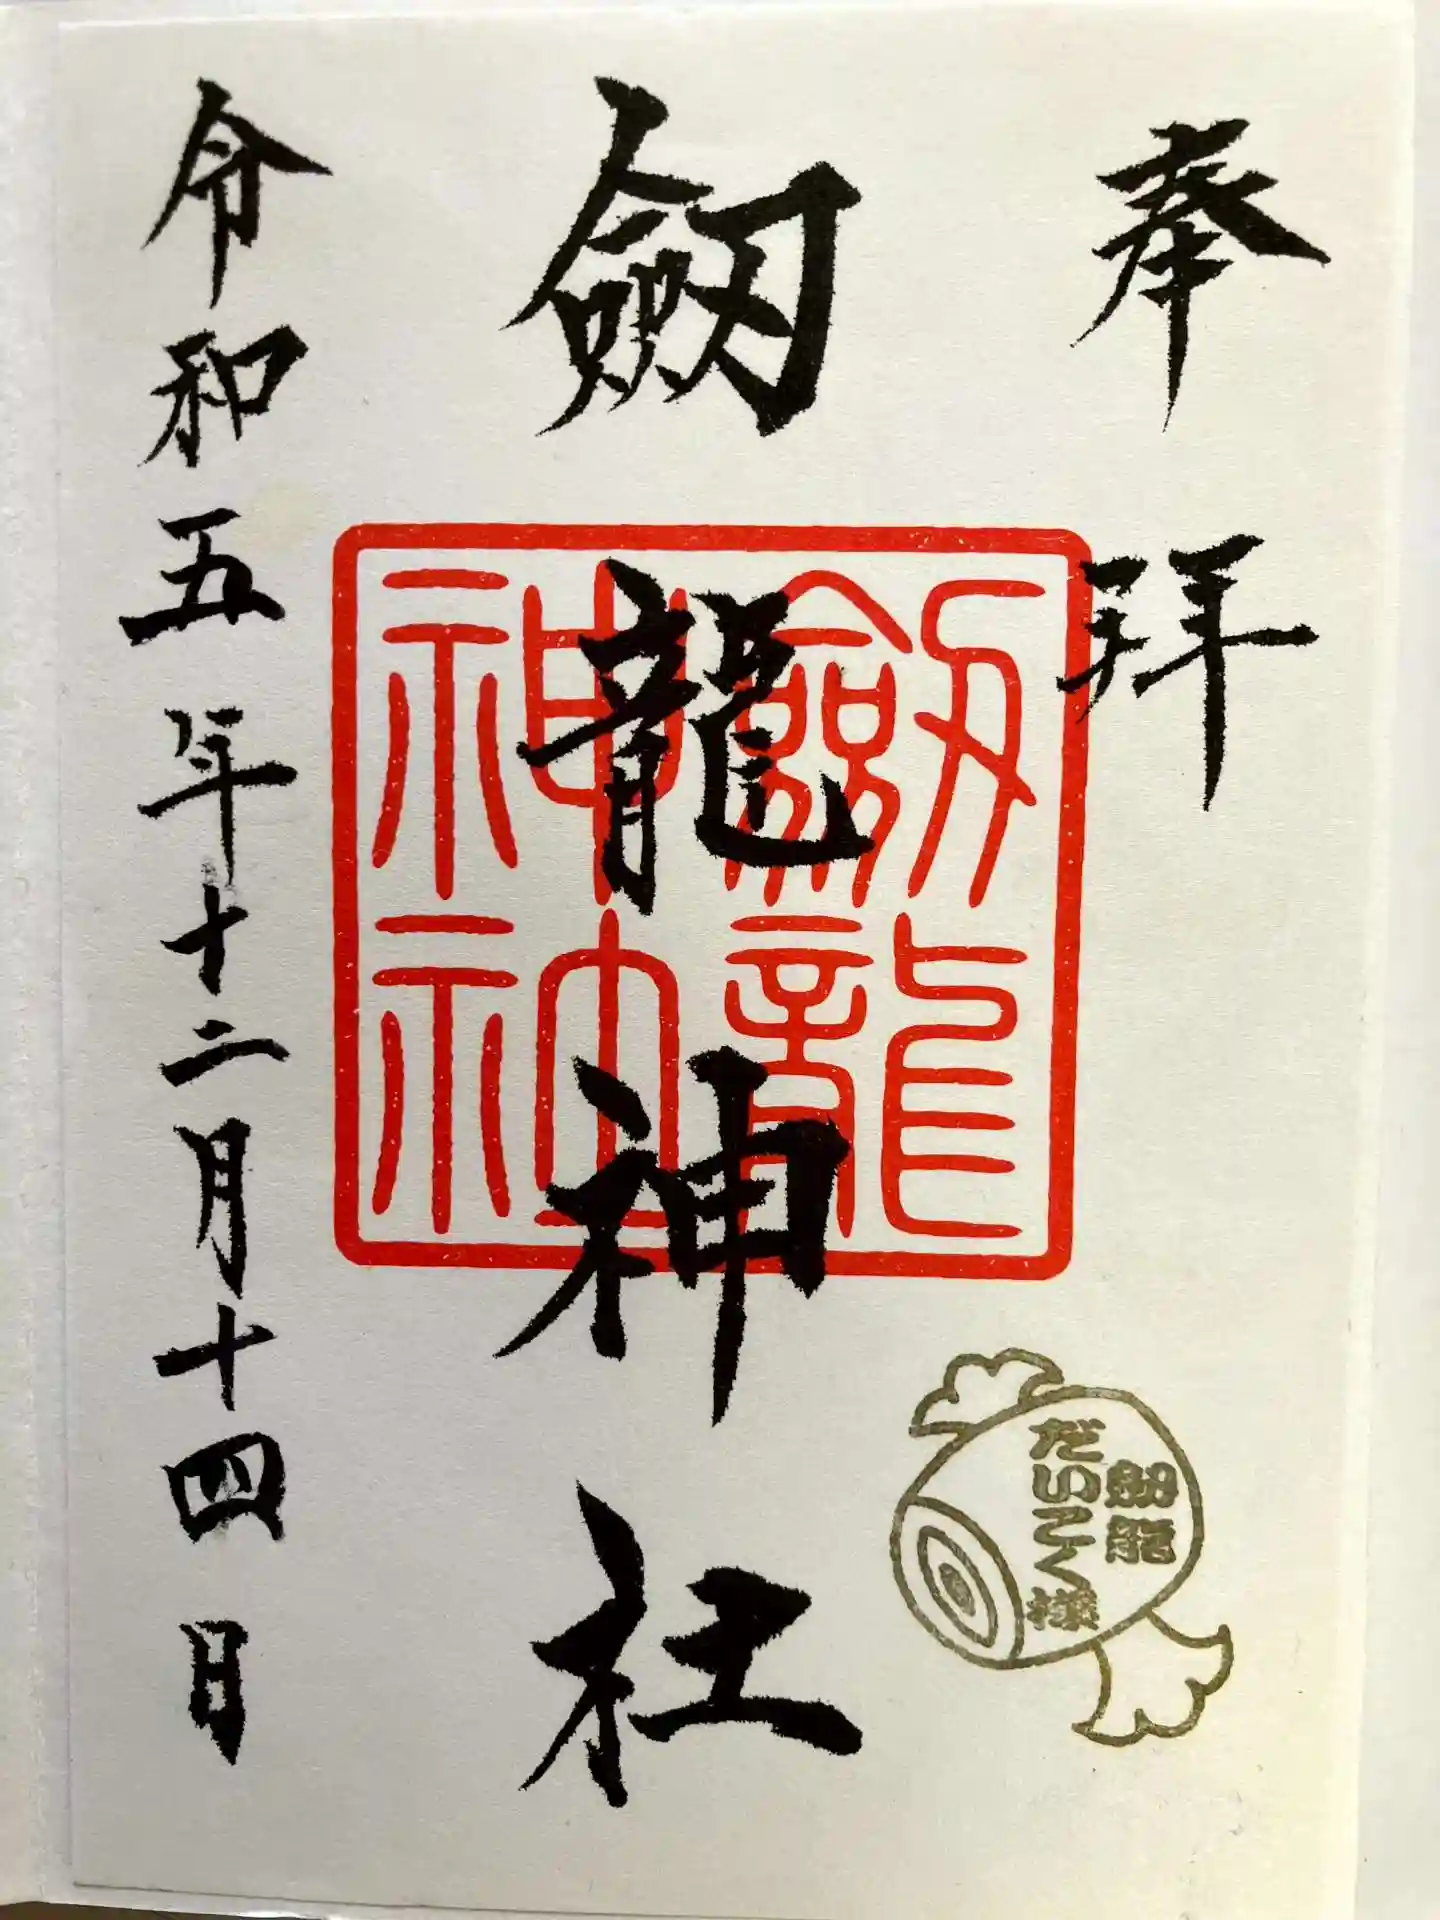 奉拝
劔龍神社
劔龍
神社
劔龍
だいこく様
令和五年十二月十四日